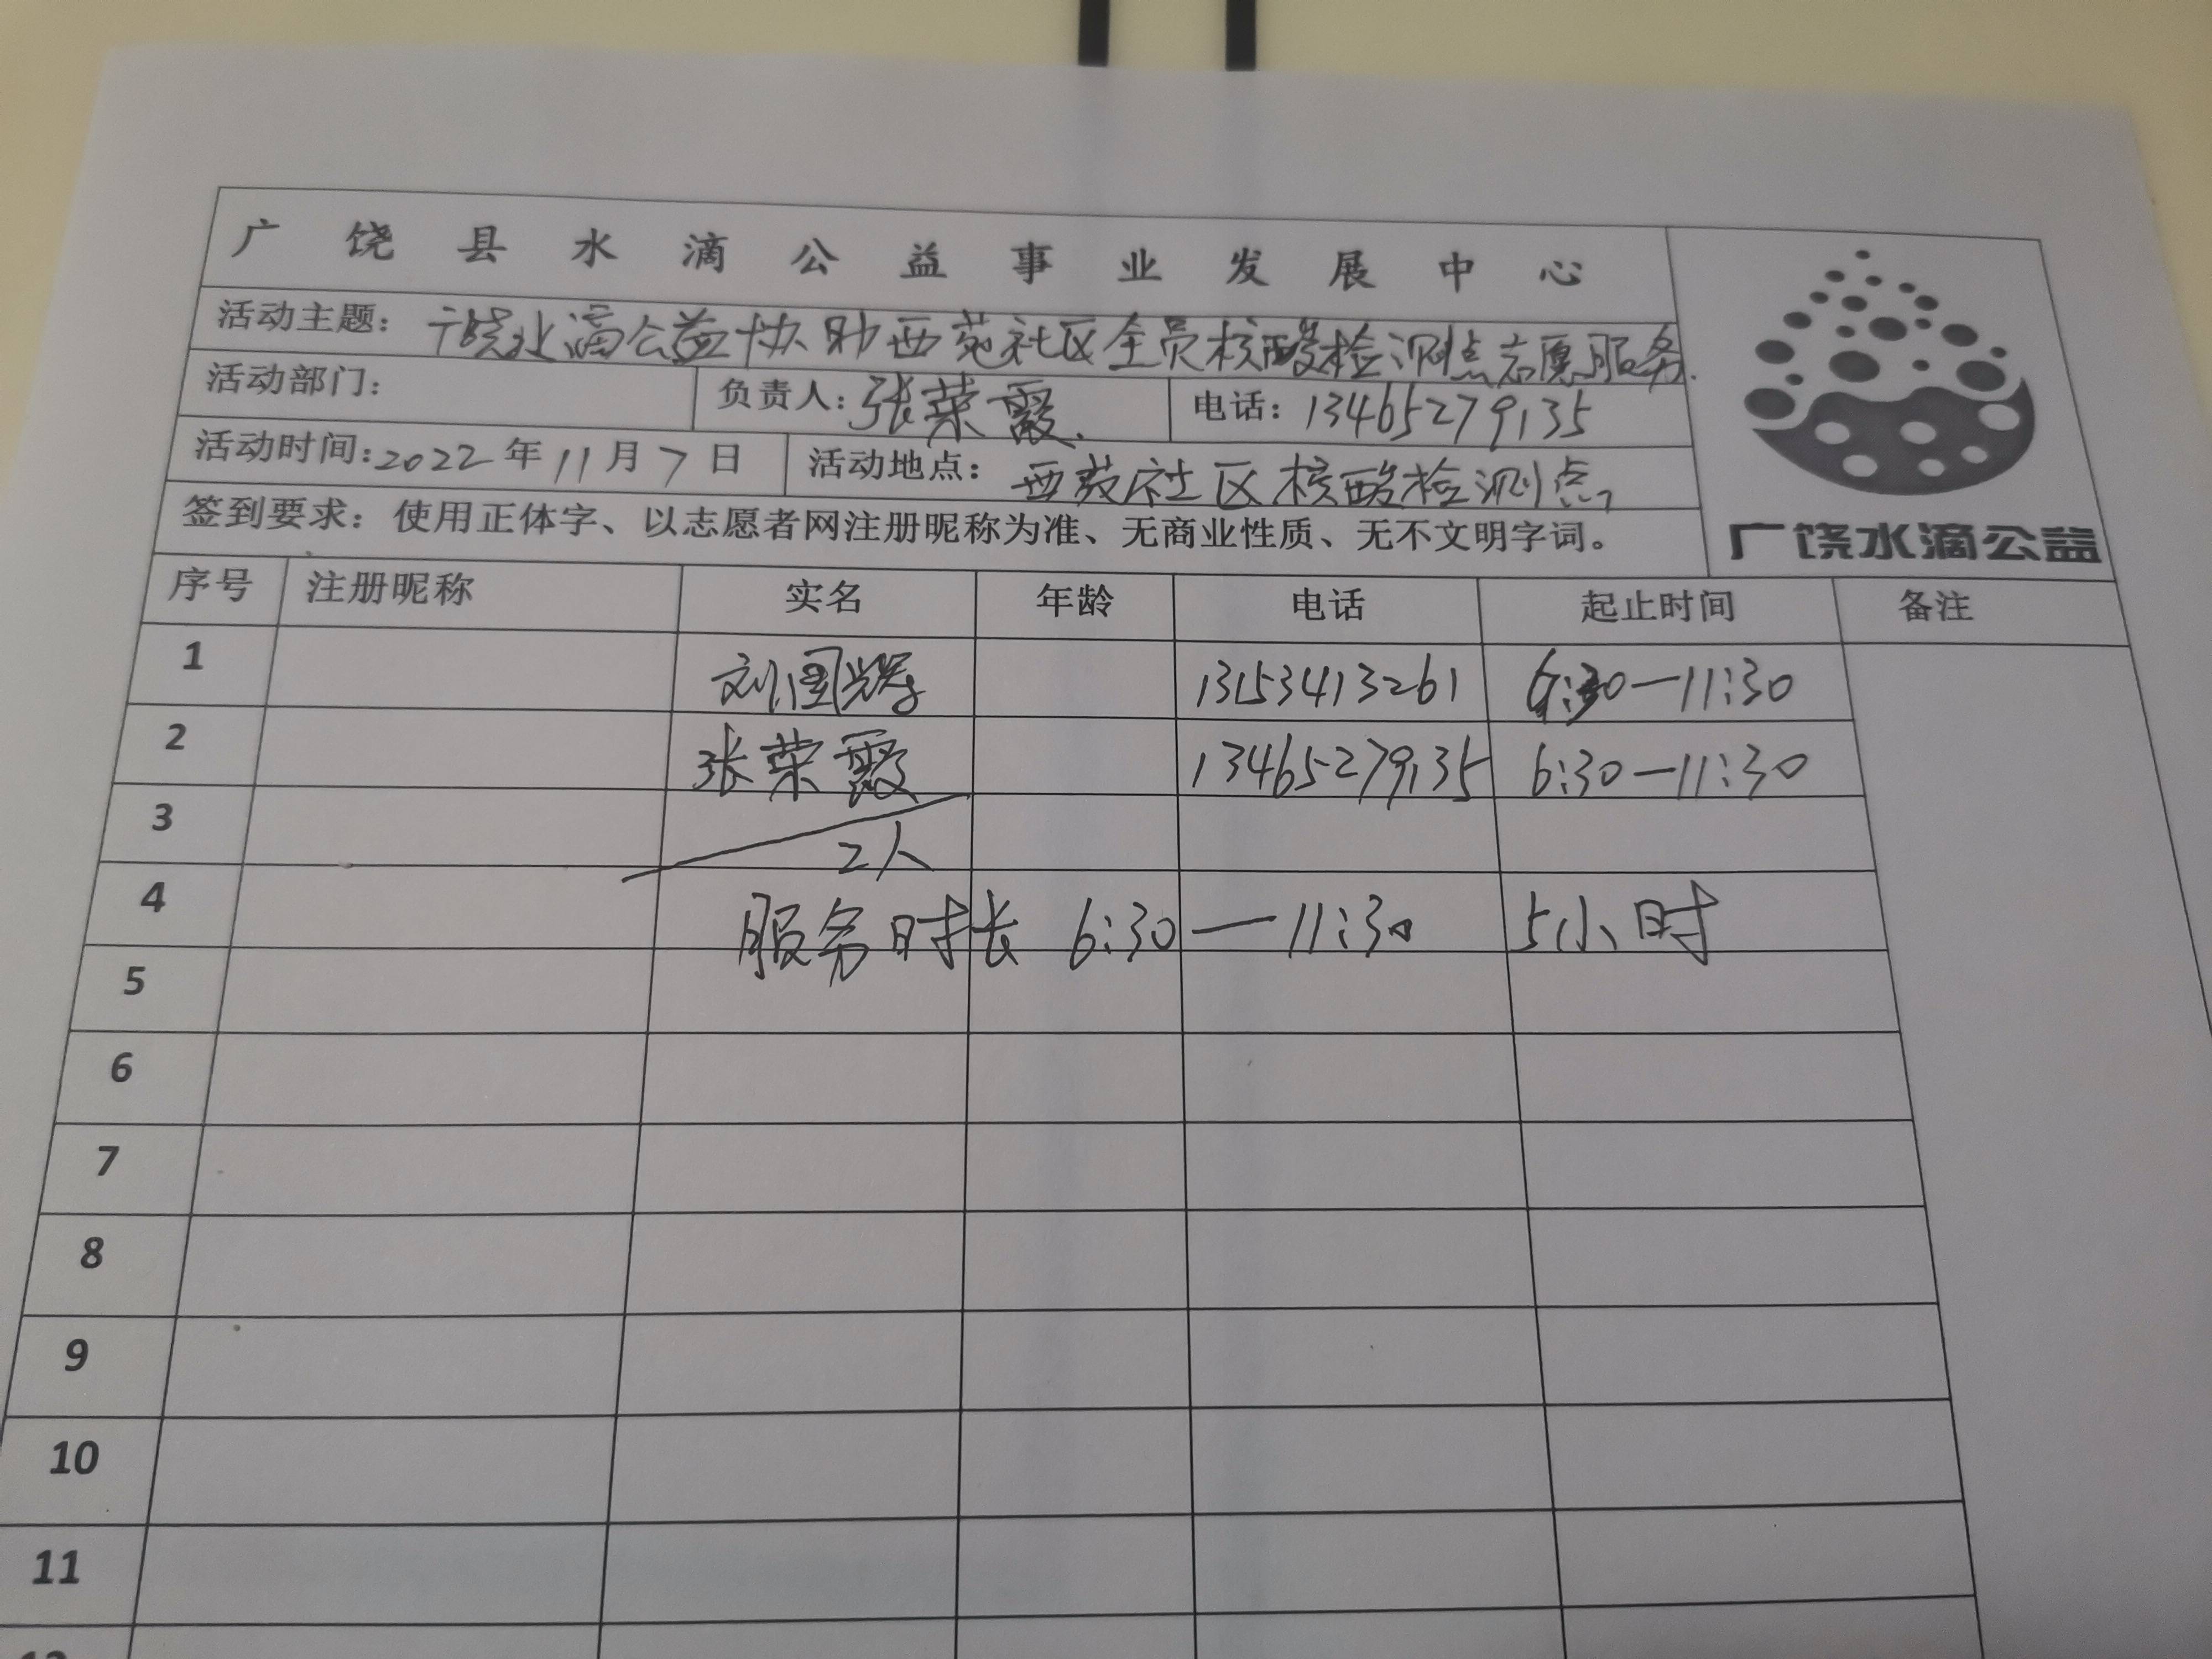 广饶县水滴公益事业发展中心
活动主题：广饶水滴公益协助西苑社区全员核酸检测点志愿服务.
活动部门： 负责人：张荣霞. 电话：13465279135
活动时间：2022年11月7日 活动地点：西苑社区核酸检测点
签到要求：使用正体字、以志愿者网注册昵称为准、无商业性质、无不文明字词。
广饶水滴公益
序号 注册昵称 实名 年龄 电话 起止时间 备注
1 刘国辉 13153413261 6:30—11:30
2 张荣霞 13465279135 6:30—11:30
3 2人
4 服务时长 6:30—11:30 5小时
5
6
7
8
9
10
11